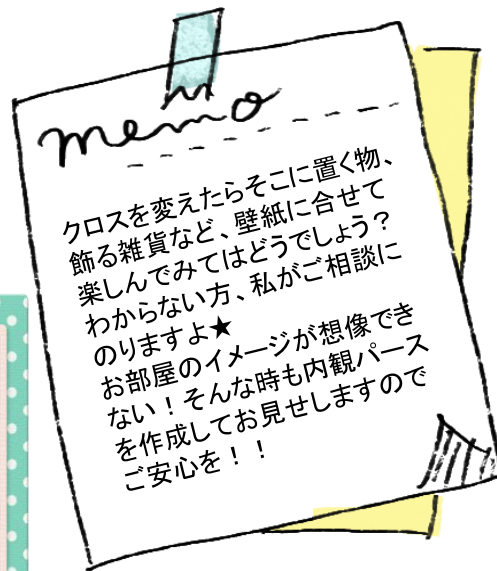 memo
クロスを変えたらそこに置く物、
飾る雑貨など、壁紙に合せて
楽しんでみてはどうでしょう？
わからない方、私がご相談に
のりますよ★
お部屋のイメージが想像でき
ない！そんな時も内観パース
を作成してお見せしますので
ご安心を！！